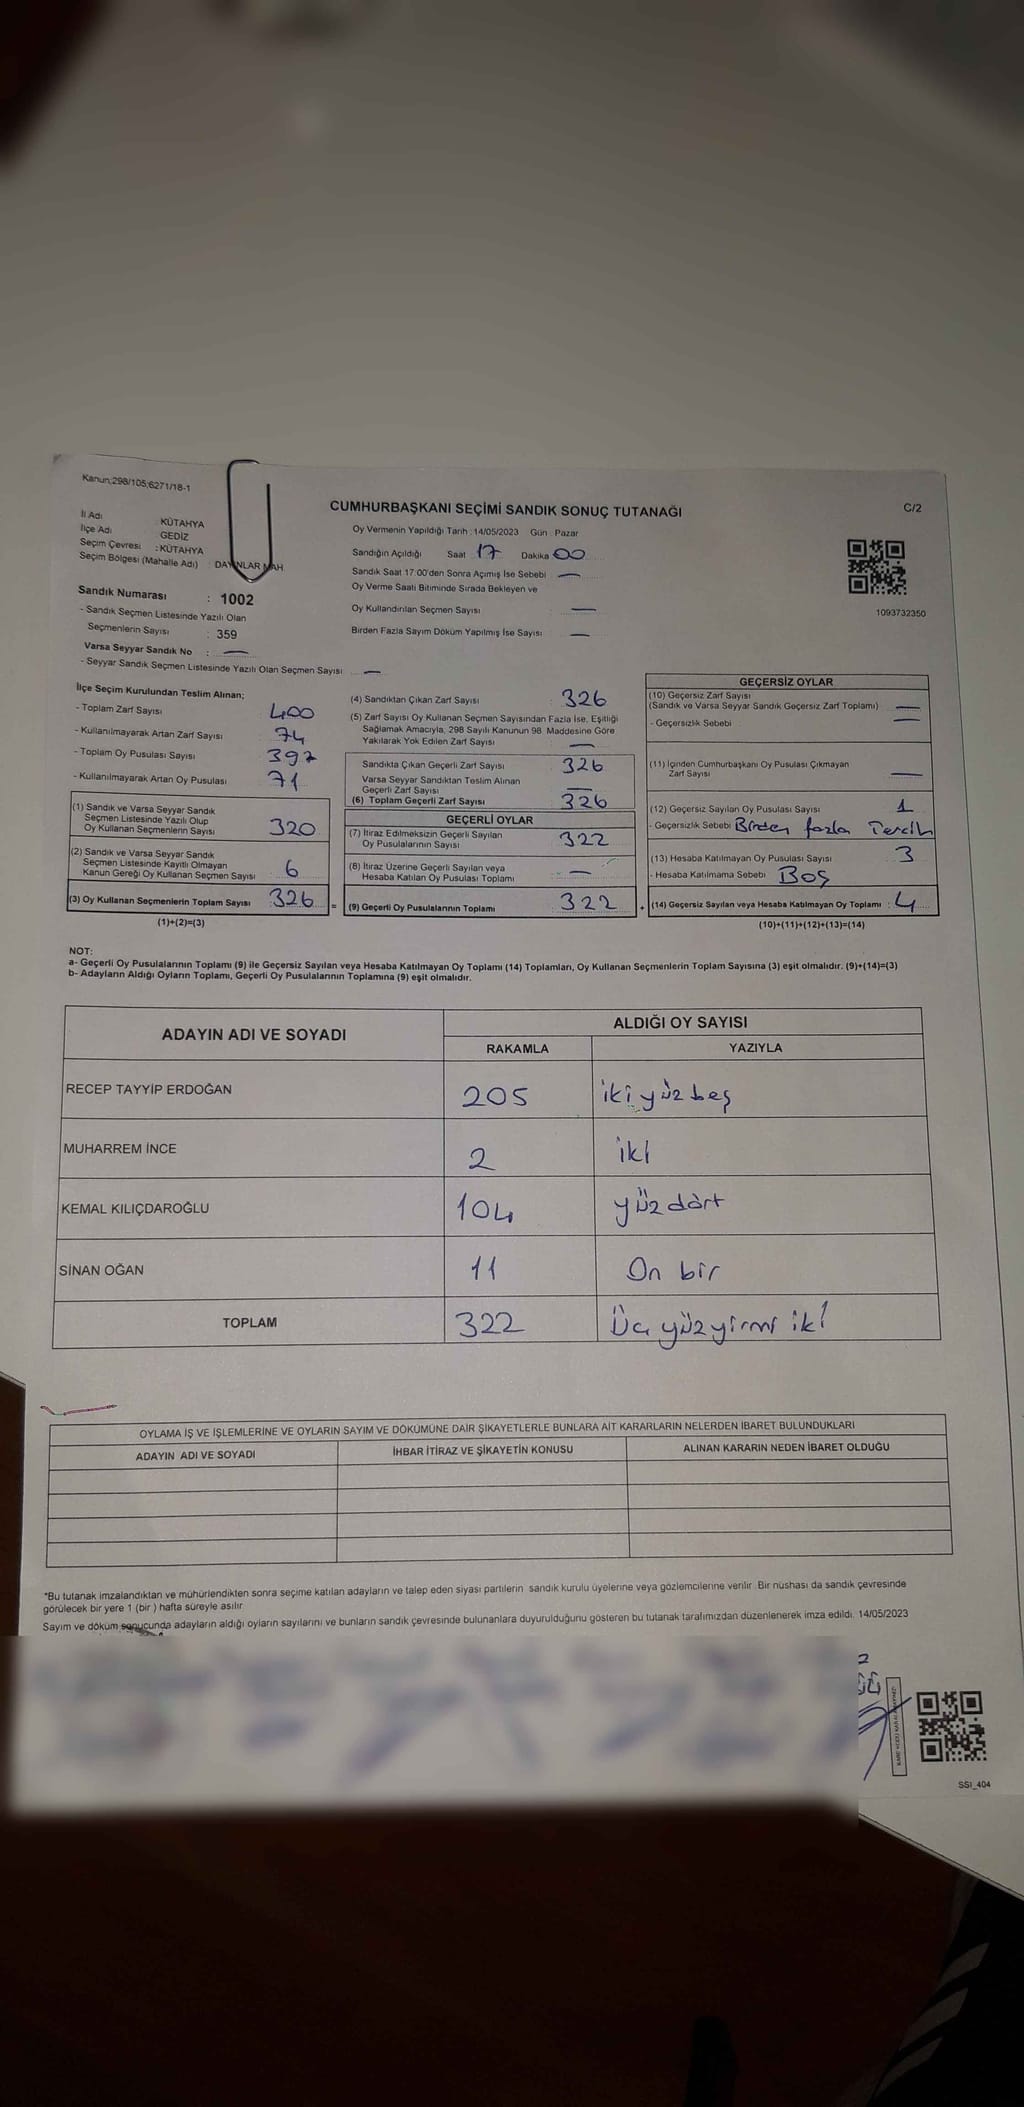 Kanun;298/105;6271/18-1
CUMHURBAŞKANI SEÇİMİ SANDIK SONUÇ TUTANAĞI
C/2
İl Adı : KÜTAHYA
İlçe Adı : GEDİZ
Seçim Çevresi : KÜTAHYA
Seçim Bölgesi (Mahalle Adı) : MAH
Sandık Numarası : 1002
- Sandık Seçmen Listesinde Yazılı Olan
Seçmenlerin Sayısı : 359
Varsa Seyyar Sandık No : —
- Seyyar Sandık Seçmen Listesinde Yazılı Olan Seçmen Sayısı : —
Oy Vermenin Yapıldığı Tarih : 14/05/2023 Gün : Pazar
Sandığın Açıldığı Saat 17 Dakika 00
Sandık Saat 17:00'den Sonra Açılmış İse Sebebi : —
Oy Verme Saati Bitiminde Sırada Bekleyen ve
Oy Kullandırılan Seçmen Sayısı —
Birden Fazla Sayım Döküm Yapılmış İse Sayısı : —
1093732350
İlçe Seçim Kurulundan Teslim Alınan;
- Toplam Zarf Sayısı 400
- Kullanılmayarak Artan Zarf Sayısı 74
- Toplam Oy Pusulası Sayısı 397
- Kullanılmayarak Artan Oy Pusulası 71
(1) Sandık ve Varsa Seyyar Sandık
Seçmen Listesinde Yazılı Olup
Oy Kullanan Seçmenlerin Sayısı 320
(2) Sandık ve Varsa Seyyar Sandık
Seçmen Listesinde Kayıtlı Olmayan
Kanun Gereği Oy Kullanan Seçmen Sayısı 6
(3) Oy Kullanan Seçmenlerin Toplam Sayısı 326 =
(1)+(2)=(3)
(4) Sandıktan Çıkan Zarf Sayısı 326
(5) Zarf Sayısı Oy Kullanan Seçmen Sayısından Fazla İse, Eşitliği
Sağlamak Amacıyla, 298 Sayılı Kanunun 98. Maddesine Göre
Yakılarak Yok Edilen Zarf Sayısı —
Sandıkta Çıkan Geçerli Zarf Sayısı 326
Varsa Seyyar Sandıktan Teslim Alınan
Geçerli Zarf Sayısı —
(6) Toplam Geçerli Zarf Sayısı 326
GEÇERLİ OYLAR
(7) İtiraz Edilmeksizin Geçerli Sayılan
Oy Pusulalarının Sayısı 322
(8) İtiraz Üzerine Geçerli Sayılan veya
Hesaba Katılan Oy Pusulası Toplamı —
(9) Geçerli Oy Pusulalarının Toplamı 322 +
GEÇERSİZ OYLAR
(10) Geçersiz Zarf Sayısı
(Sandık ve Varsa Seyyar Sandık Geçersiz Zarf Toplamı) —
- Geçersizlik Sebebi —
(11) İçinden Cumhurbaşkanı Oy Pusulası Çıkmayan
Zarf Sayısı —
(12) Geçersiz Sayılan Oy Pusulası Sayısı 1
- Geçersizlik Sebebi Birden fazla Tercih
(13) Hesaba Katılmayan Oy Pusulası Sayısı 3
- Hesaba Katılmama Sebebi Boş
(14) Geçersiz Sayılan veya Hesaba Katılmayan Oy Toplamı : 4
(10)+(11)+(12)+(13)=(14)
NOT:
a- Geçerli Oy Pusulalarının Toplamı (9) ile Geçersiz Sayılan veya Hesaba Katılmayan Oy Toplamı (14) Toplamları, Oy Kullanan Seçmenlerin Toplam Sayısına (3) eşit olmalıdır. (9)+(14)=(3)
b- Adayların Aldığı Oyların Toplamı, Geçerli Oy Pusulalarının Toplamına (9) eşit olmalıdır.
ADAYIN ADI VE SOYADI ALDIĞI OY SAYISI
RAKAMLA YAZIYLA
RECEP TAYYİP ERDOĞAN 205 iki yüz beş
MUHARREM İNCE 2 iki
KEMAL KILIÇDAROĞLU 104 yüz dört
SİNAN OĞAN 11 On bir
TOPLAM 322 Üç yüz yirmi iki
OYLAMA İŞ VE İŞLEMLERİNE VE OYLARIN SAYIM VE DÖKÜMÜNE DAİR ŞİKAYETLERLE BUNLARA AİT KARARLARIN NELERDEN İBARET BULUNDUKLARI
ADAYIN ADI VE SOYADI İHBAR İTİRAZ VE ŞİKAYETİN KONUSU ALINAN KARARIN NEDEN İBARET OLDUĞU
*Bu tutanak imzalandıktan ve mühürlendikten sonra seçime katılan adayların ve talep eden siyasi partilerin sandık kurulu üyelerine veya gözlemcilerine verilir. Bir nüshası da sandık çevresinde
görülecek bir yere 1 (bir ) hafta süreyle asılır.
Sayım ve döküm sonucunda adayların aldığı oyların sayılarını ve bunların sandık çevresinde bulunanlara duyurulduğunu gösteren bu tutanak tarafımızdan düzenlenerek imza edildi. 14/05/2023
SSI_404